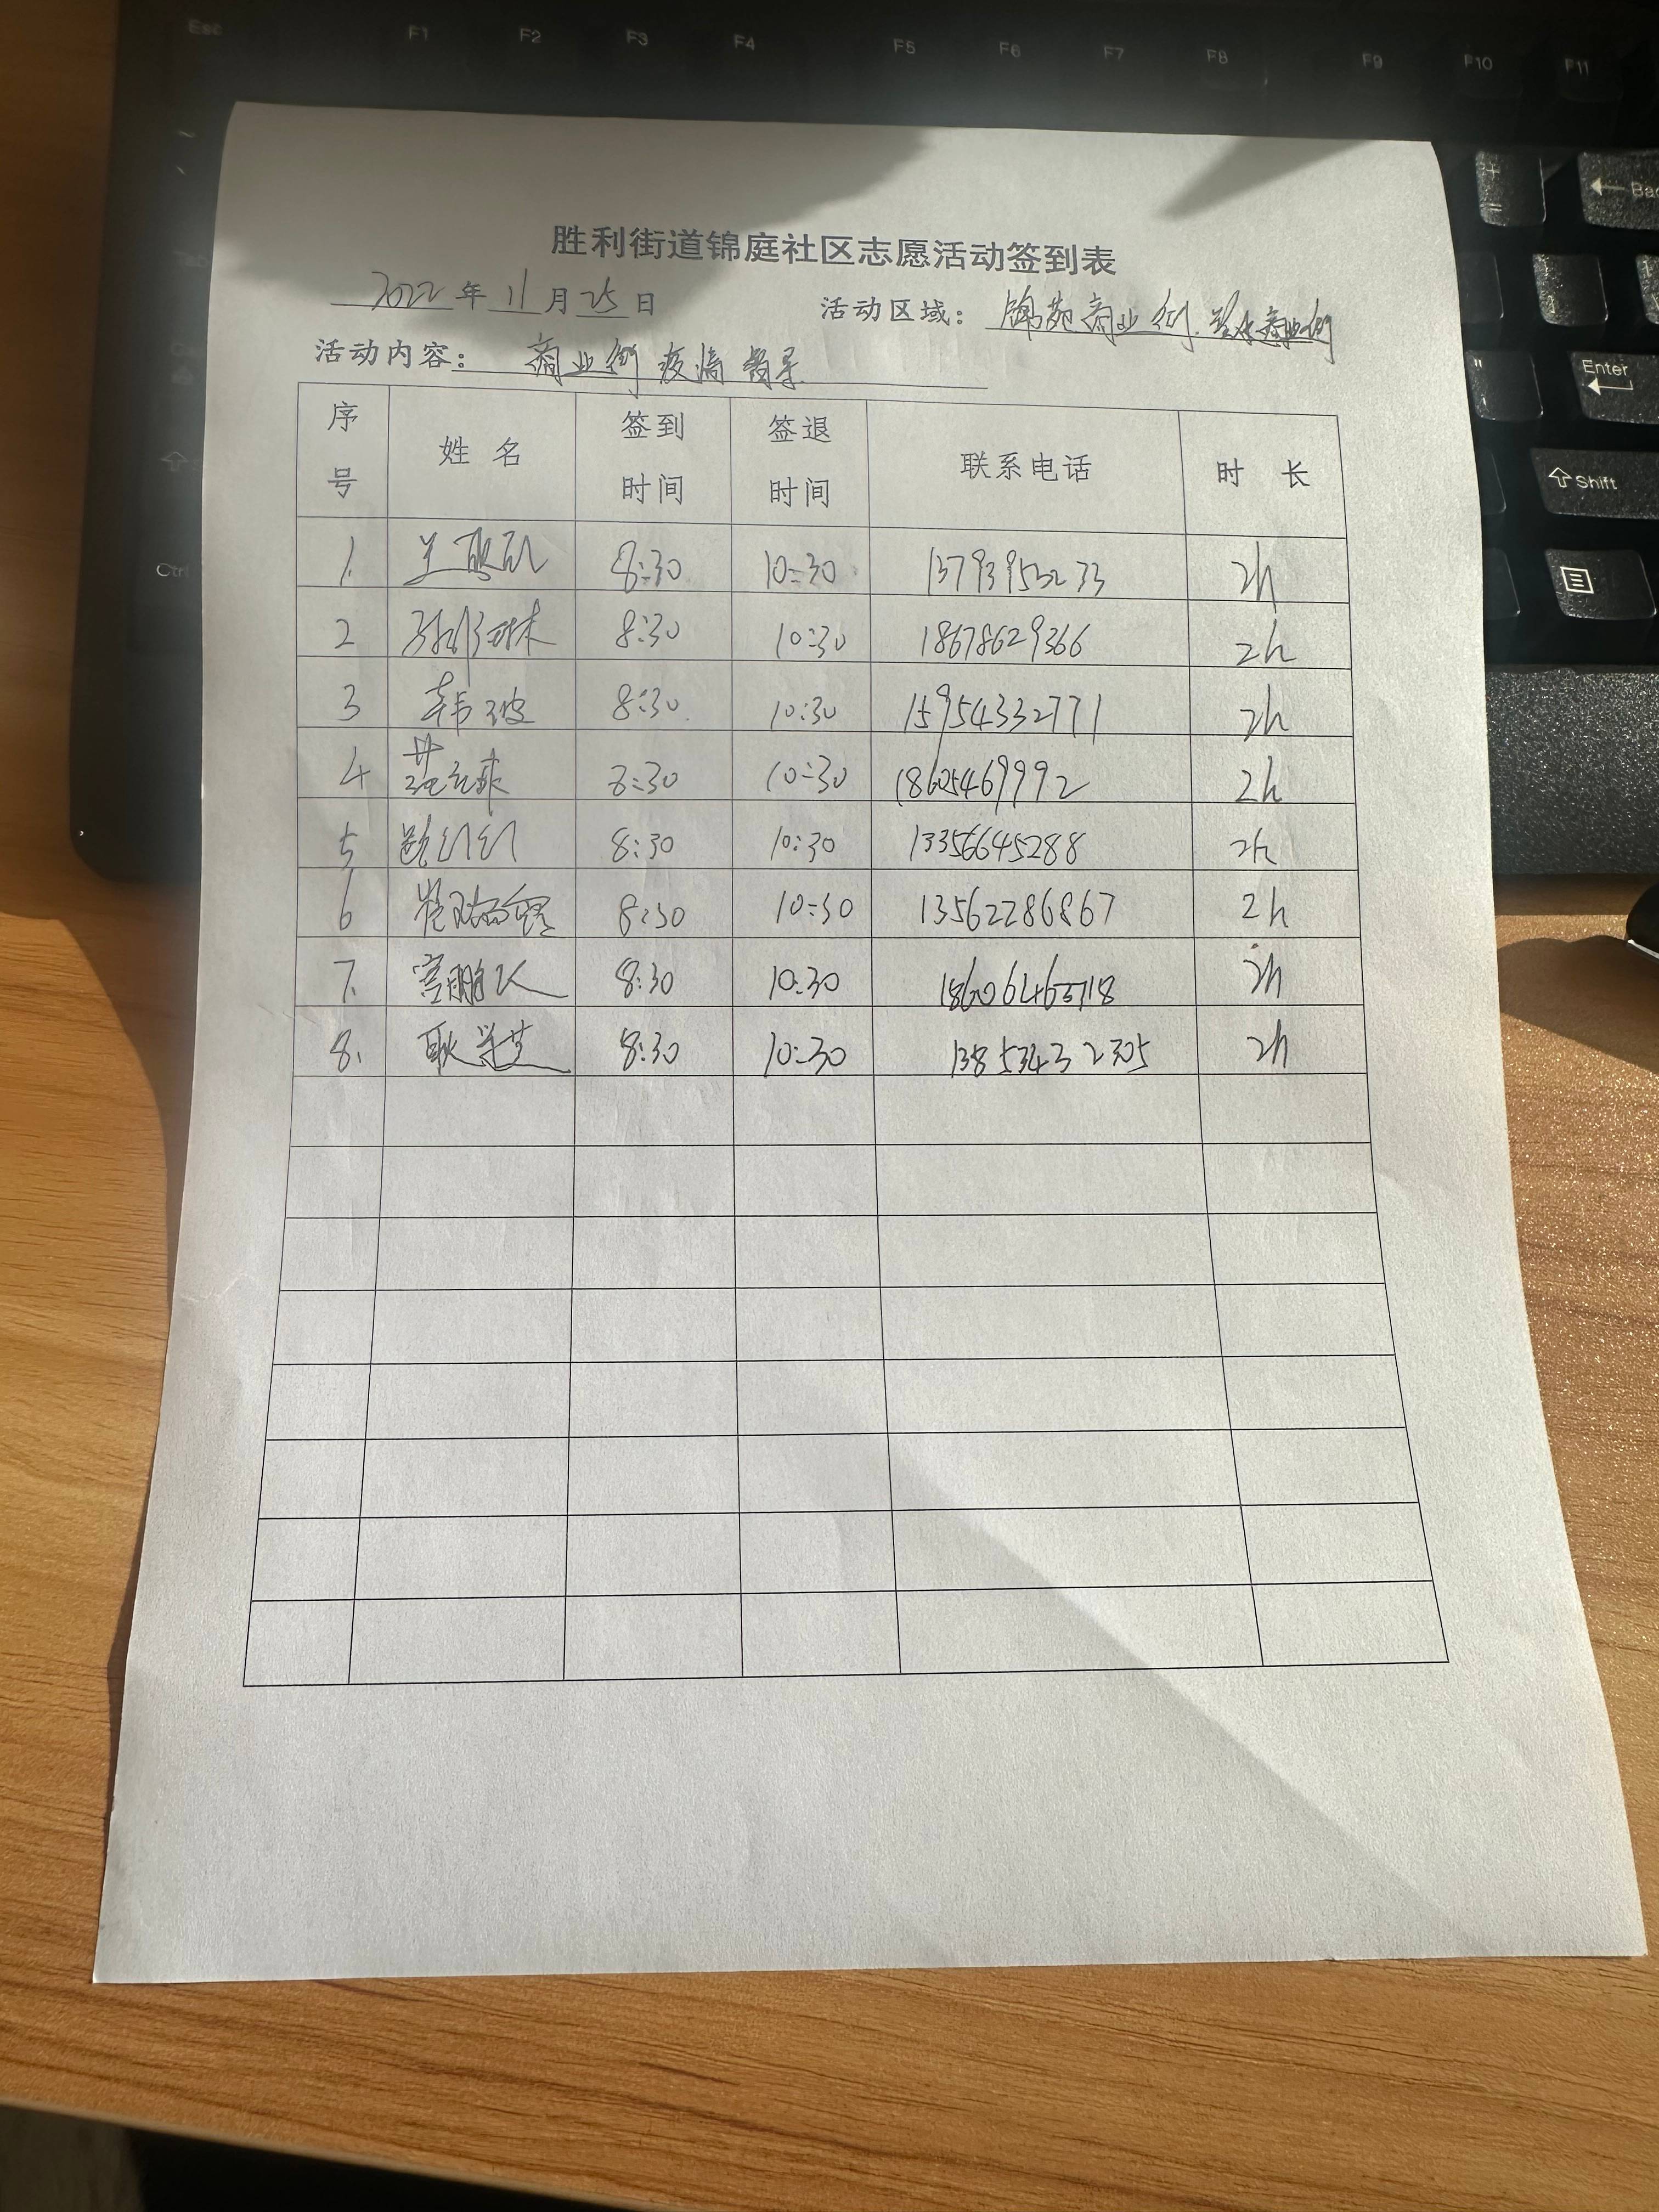 Esc F1 F2 F3 F4 F5 F6 F7 F8 F9 F10 F11
胜利街道锦庭社区志愿活动签到表
2022年11月25日 活动区域：锦苑商业街.商业街
活动内容：商业街疫情督导
序号 姓名 签到时间 签退时间 联系电话 时长
1. 8:30 10:30 13793953233 2h
2 8:30 10:30 18678629366 2h
3 韩波 8:30 10:30 15954332771 2h
4 8:30 10:30 18605469992 2h
5 路红红 8:30 10:30 13356645288 2h
6 8:30 10:30 13562286867 2h
7. 8:30 10:30 2h
8. 耿学芝 8:30 10:30 13853432305 2h
Enter
Shift
Ctrl